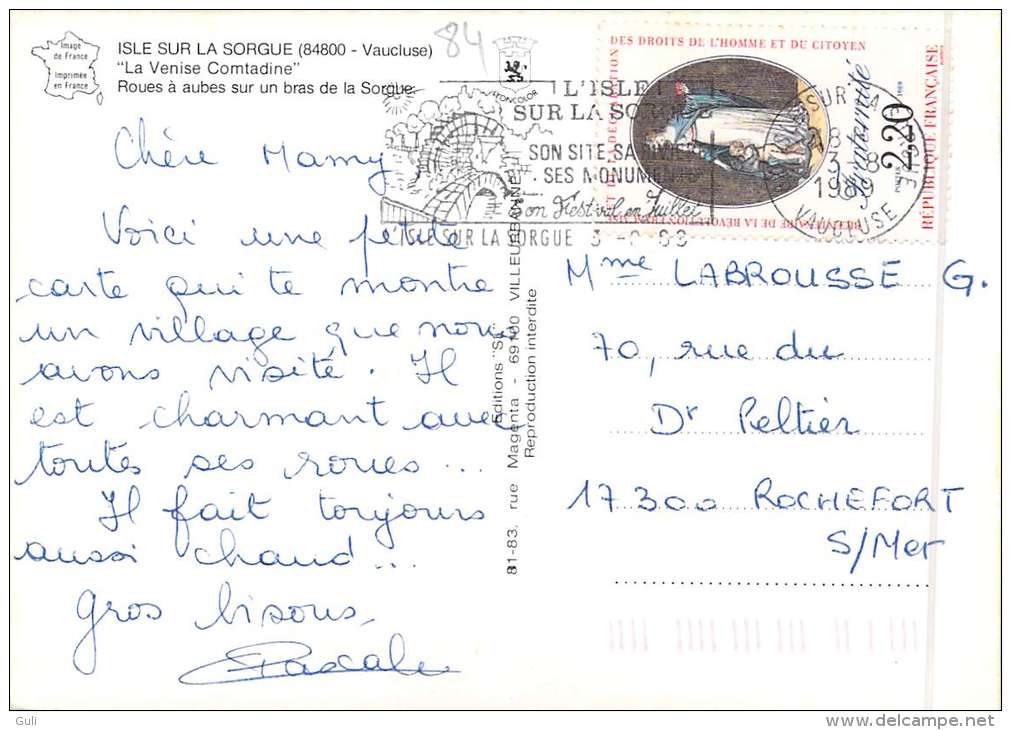 Image
de France
Imprimée
en France
ISLE SUR LA SORGUE (84800 - Vaucluse)
"La Venise Comtadine"
Roues à aubes sur un bras de la Sorgue.
84
Chère Mamy
Voici une petite
carte qui te montre
un village que nous
avons visité. Il
est charmant avec
toutes ses roues...
Il fait toujours
aussi chaud...
Gros bisous,
Pascale
Editions "S
81-83, rue Magenta - 69100 VILLEURBANNE
Reproduction interdite
L'ISLE
SUR LA SORGUE
SON SITE
SES MONUMENTS
Son Festival en Juillet
L'ISLE SUR LA SORGUE 3
SUR LA
18
3-8
1989
VAUCLUSE
DES DROITS DE L'HOMME ET DU CITOYEN
BICENTENAIRE DE LA REVOLUTION FRANÇAISE ET DE LA DECLARATION
Fraternité
POSTES 2,20 1989
RÉPUBLIQUE FRANÇAISE
Mme LABROUSSE G.
70, rue du
Dr Peltier
17300 ROCHEFORT
S/Mer
Guli
www.delcampe.net